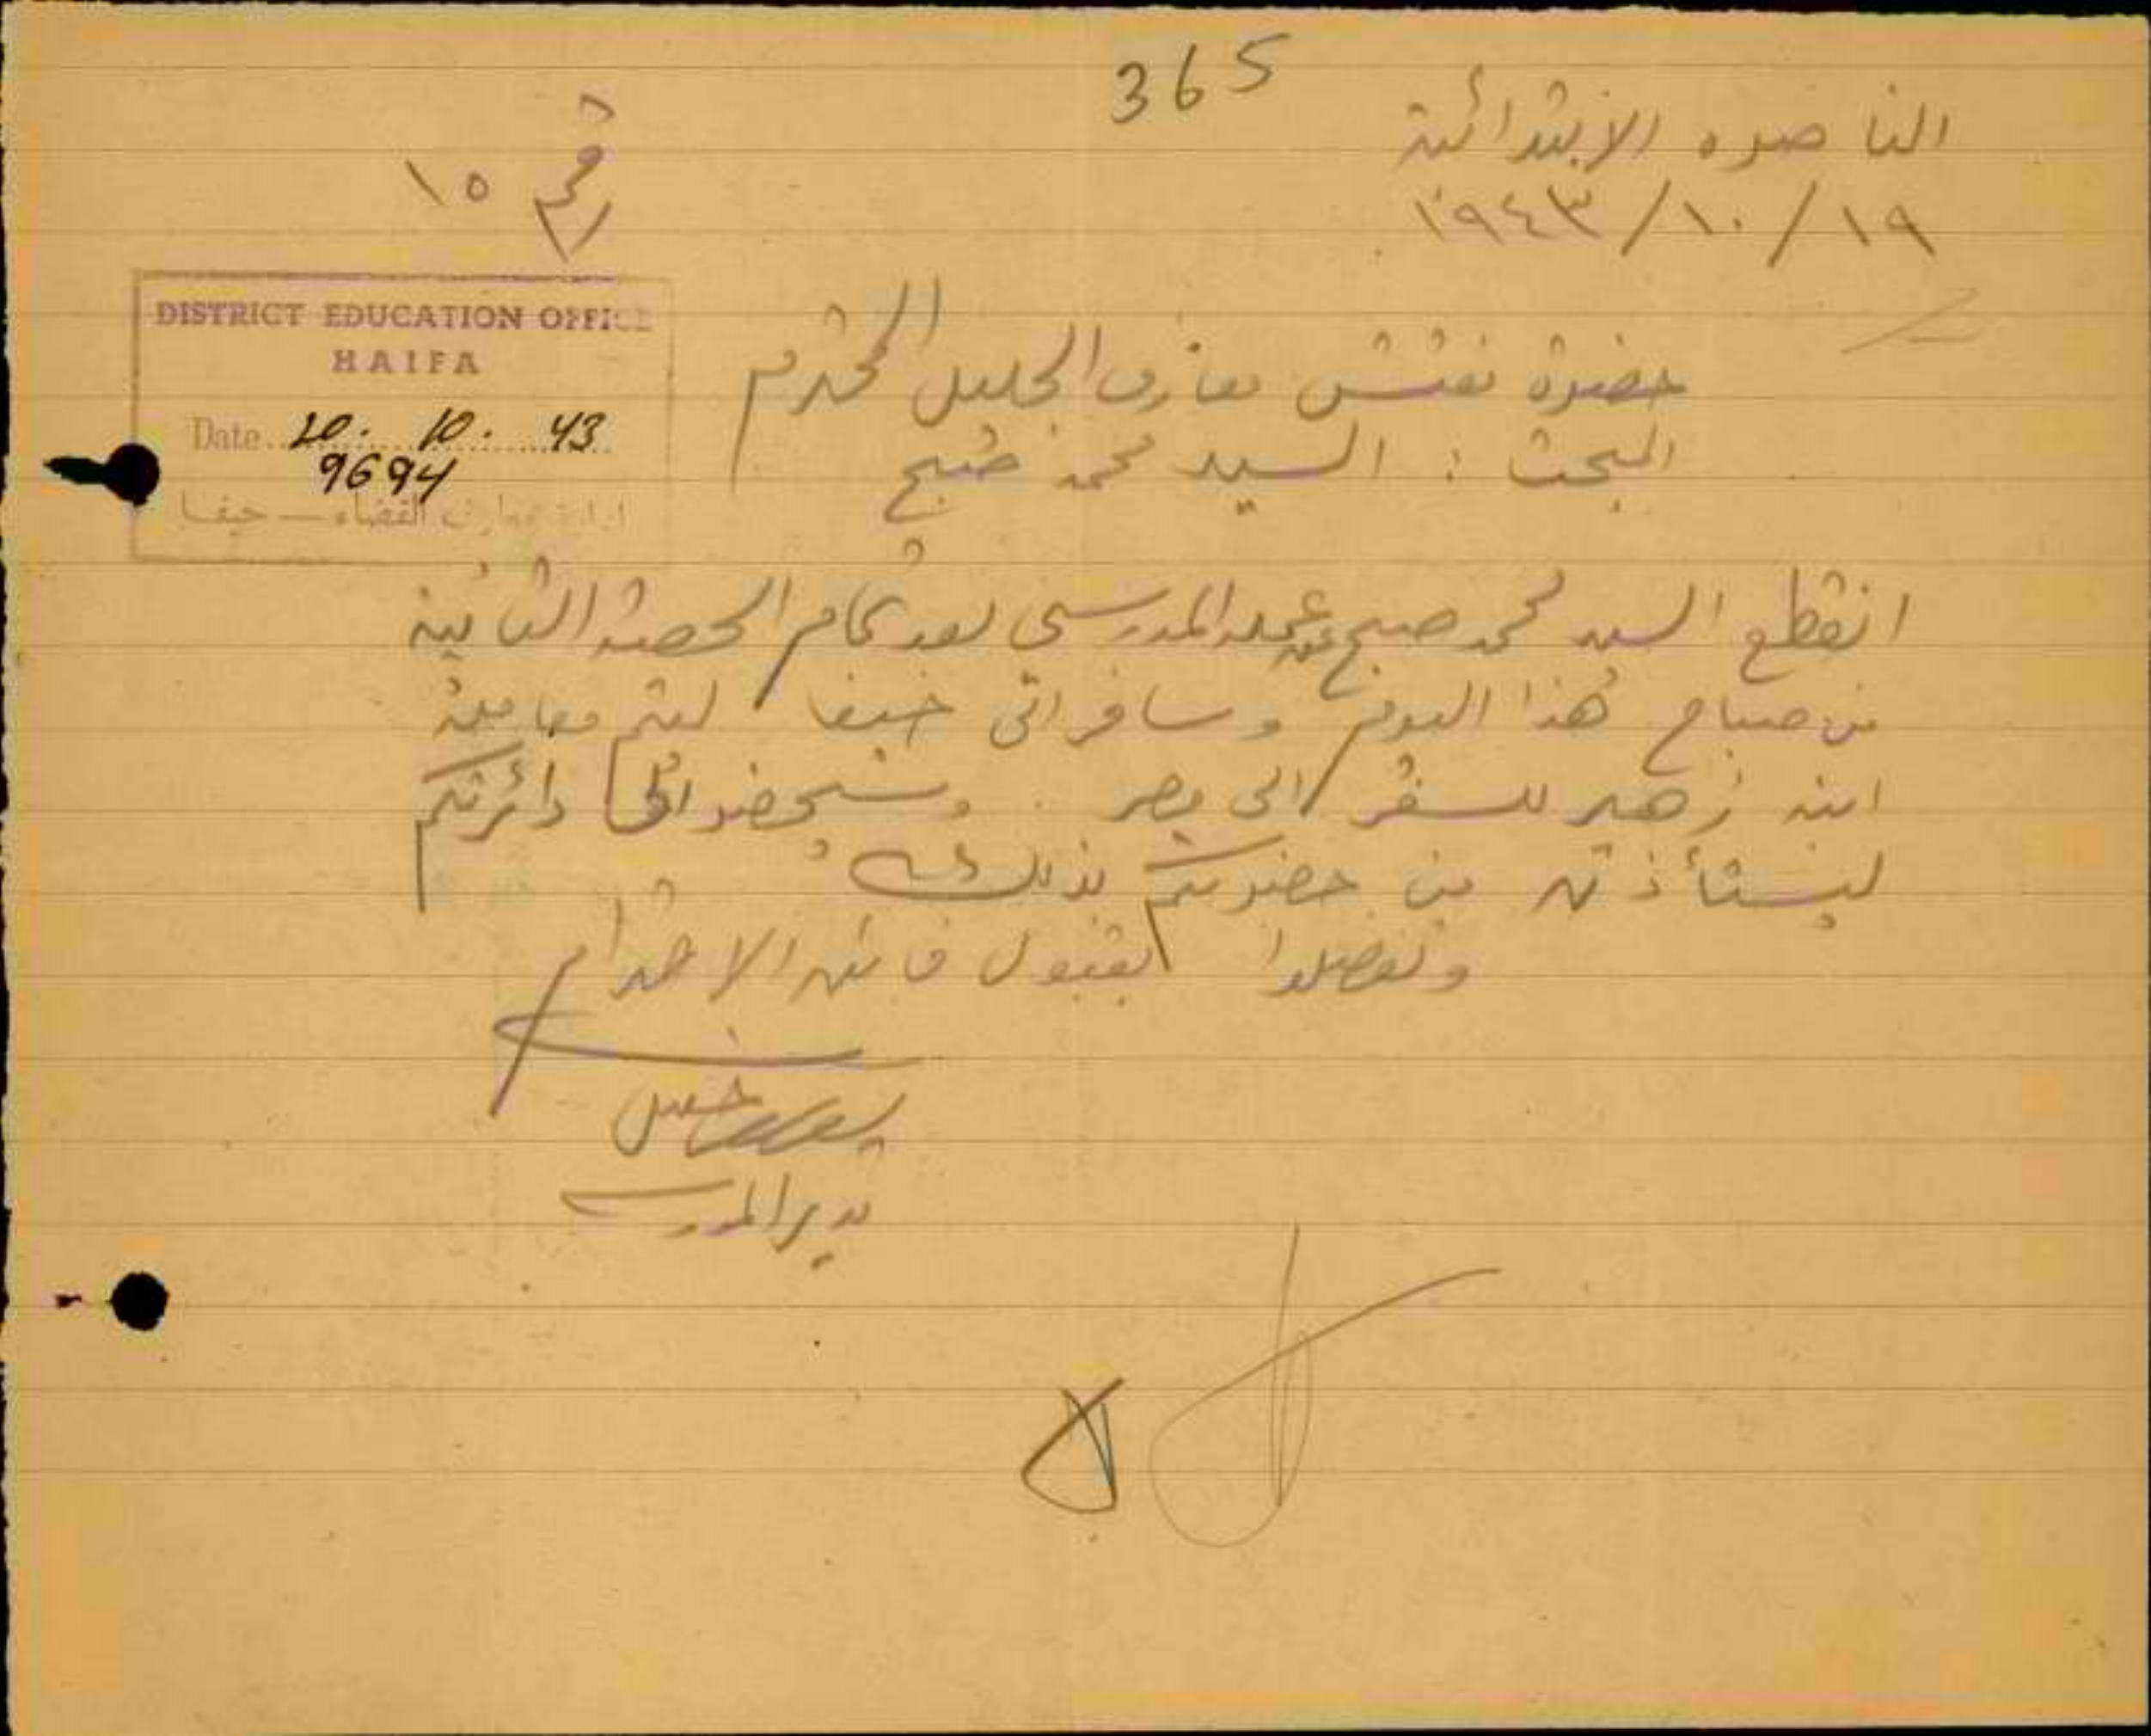 365
الناصره الابتدائية
رقم ١٥
١٩/١٠/١٩٤٣
DISTRICT EDUCATION OFFICE
HAIFA
Date 20. 10. 43
9694
ادارة معارف القضاء — حيفا
حضرة مفتش معارف الجليل المحترم
البحث : السيد محمد صبح
انقطع السيد محمد صبح عن عمله المدرسي بعد تمام الحصة الثانية
من صباح هذا اليوم وسافر الى حيفا ليتم معاملة
ابنه زهير للسفر الى مصر . وسيحضر الى دائرتكم
ليستأذن من حضرتكم بذلك
وتفضلوا بقبول فائق الاحترام
مدير المدرسة